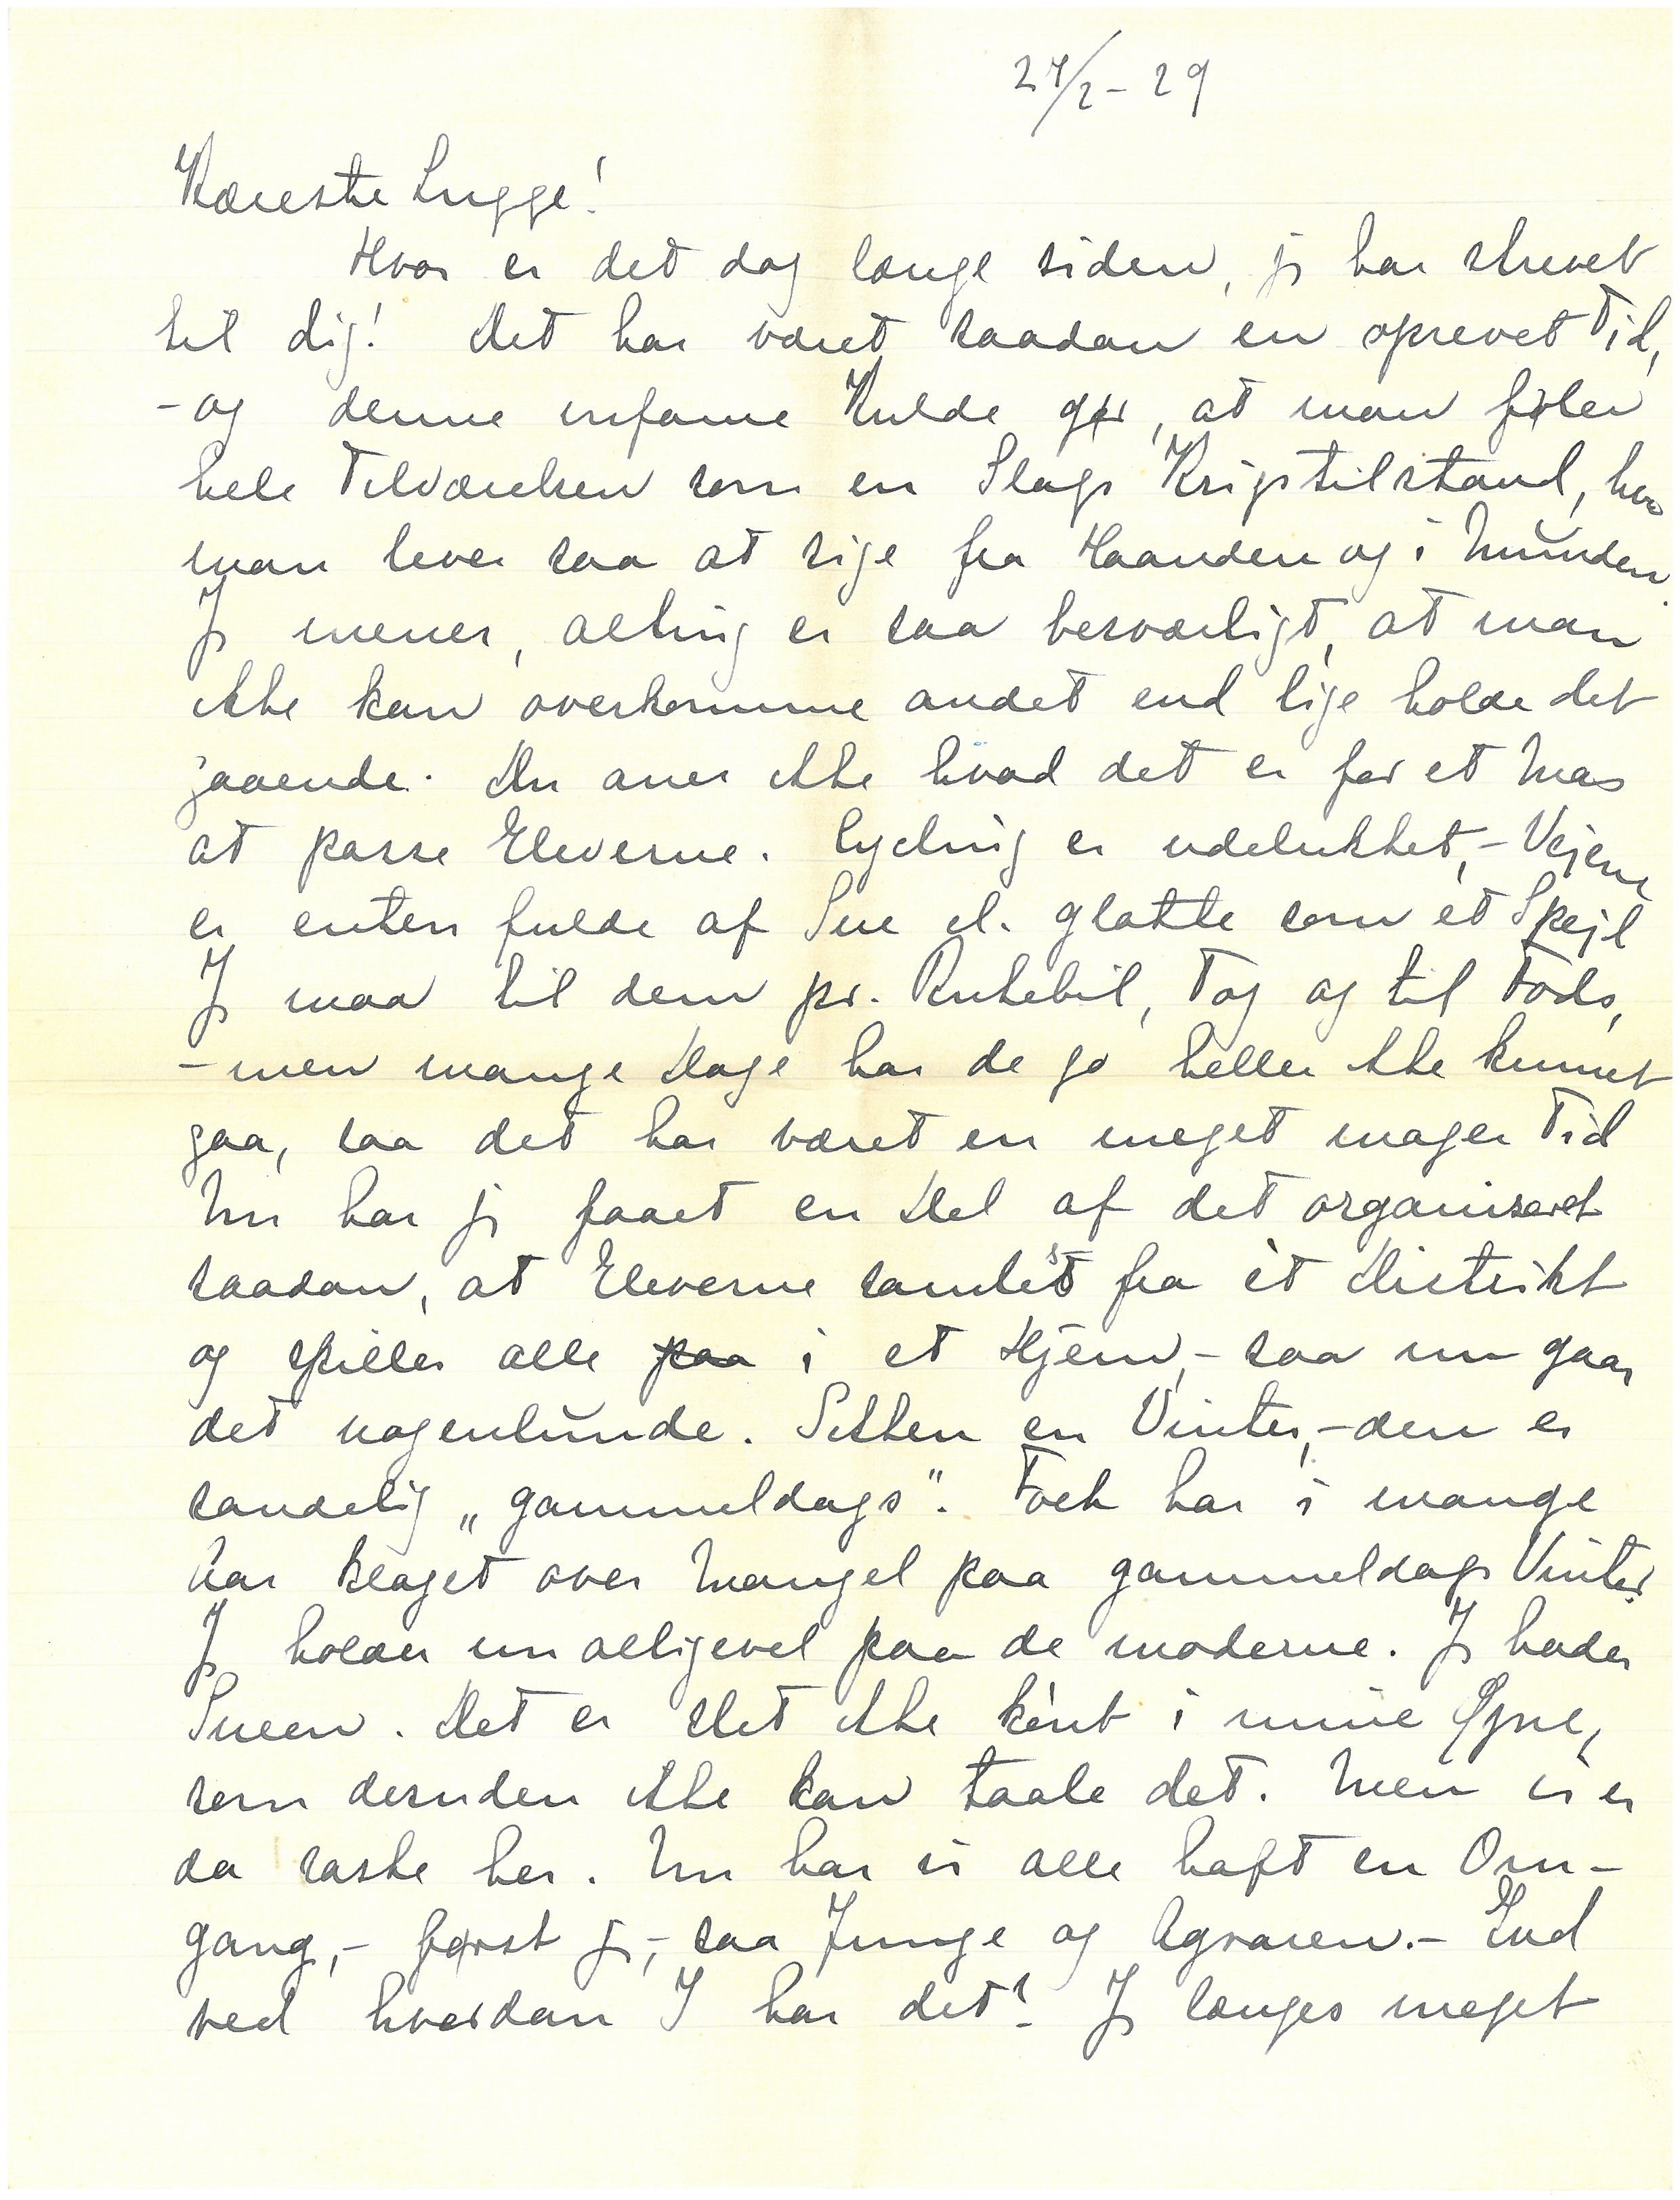 24/2 - 29
Kæreste Lugge!
Hvor er det dog længe siden, jeg har skrevet
til dig! Det har været saadan en oprevet Tid,
- og denne infame Kulde gør, at man føler
hele Tilværelsen som en Slags Krigstilstand, hvor
man lever saa at sige fra Haanden og i Munden.
Jeg mener, alting er saa besværligt, at man
ikke kan overkomme andet end lige holde det
gaaende. Du aner ikke hvad det er for et Mas
at passe Eleverne. Cycling er udelukket, - Vejene
er enten fulde af Sne el. glatte som et Spejl
Jeg maa til dem pr. Rutebil, Tog og til Fods,
- men mange Dage har de jo heller ikke kunnet
gaa, saa det har været en meget mager Tid
Nu har jeg faaet en Del af det organiseret
saadan, at Eleverne samles fra èt Distrikt
og spiller alle paa i et Hjem, - saa nu gaar
det nogenlunde. Sikken en Vinter, - den er
sandelig „gammeldags". Folk har i mange
Aar klaget over Mangel paa gammeldags Vinter.
Jeg holder nu alligevel paa de moderne. Jeg hader
Sneen. Det er slet ikke kønt i mine Øjne,
som desuden ikke kan taale det. Men vi er
da raske her. Nu har vi alle haft en Om-
gang, - først jeg, - saa Junge og Agraren. - Gud
ved hvordan I har det? Jeg længes meget